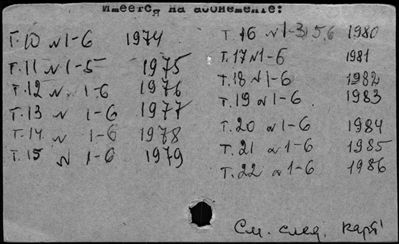 имеется на абонементе:
Т.10 №1-6 1974
Т.11 №1-5 1975
Т.12 № 1-6 1976
Т.13 № 1-6 1977
Т.14 № 1-6 1978
Т.15 № 1-6 1979
Т.16 №1-3,5,6 1980
Т.17 №1-6 1981
Т.18 №1-6 1982
Т.19 №1-6 1983
Т.20 №1-6 1984
Т.21 №1-6 1985
Т.22 №1-6 1986
См. след. карт